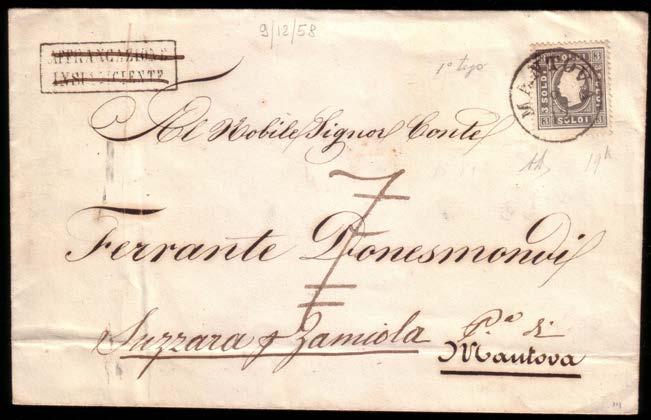 9/12/58
AFFRANCAZIONE
INSUFFICIENTE
1° tipo
MANTOVA
3 SOLDI 3
Al Nobile Signor Conte
7
Ferrante Donesmondi
Suzzara p Zamiola
P.a di
Mantova